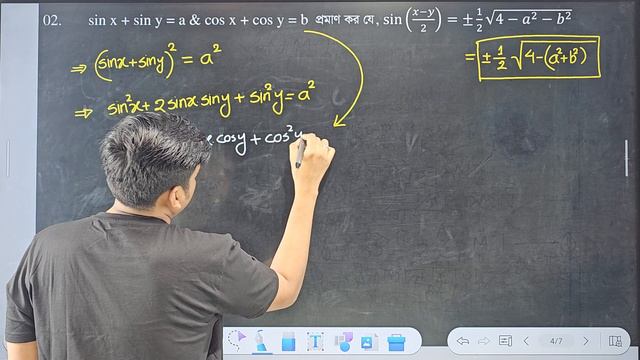 02. sin x + sin y = a & cos x + cos y = b প্রমাণ কর যে, sin (x−y/2) = ±1/2√4 − a² − b²
⇒ (sinx+siny)² = a²
= ±1/2 √4−(a²+b²)
⇒ sin²x + 2 sinx siny + sin²y = a²
cosy + cos²y
T
4/7